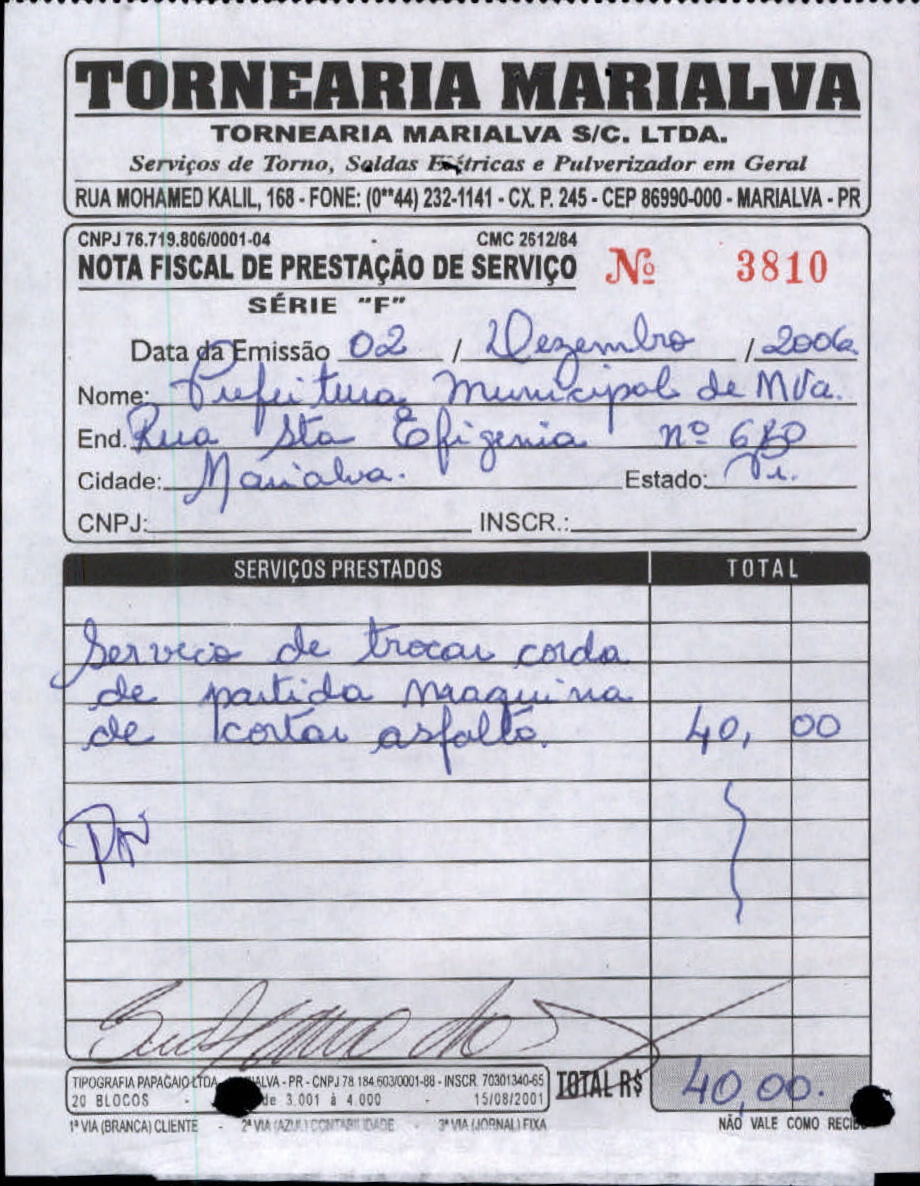 TORNEARIA MARIALVA
TORNEARIA MARIALVA S/C. LTDA.
Serviços de Torno, Soldas Elétricas e Pulverizador em Geral
RUA MOHAMED KALIL, 168 - FONE: (0**44) 232-1141 - CX. P. 245 - CEP 86990-000 - MARIALVA - PR
CNPJ 76.719.806/0001-04 CMC 2612/84
NOTA FISCAL DE PRESTAÇÃO DE SERVIÇO Nº 3810
SÉRIE "F"
Data da Emissão 02 / Dezembro / 2006
Nome: Prefeitura Municipal de MVa.
End. Rua Sta Efigenia nº 680
Cidade: Marialva. Estado: Pr.
CNPJ: INSCR.:
SERVIÇOS PRESTADOS TOTAL
Serviço de trocar corda
de partida maquina
de cortar asfalto. 40, 00
TIPOGRAFIA PAPAGAIO LTDA ALVA - PR - CNPJ 78 184 603/0001-88 - INSCR. 70301340-65
20 BLOCOS - de 3.001 à 4.000 - 15/08/2001
TOTAL R$ 40,00.
1ª VIA (BRANCA) CLIENTE - 2ª VIA (AZUL) CONTABILIDADE - 3ª VIA (JORNAL) FIXA
NÃO VALE COMO